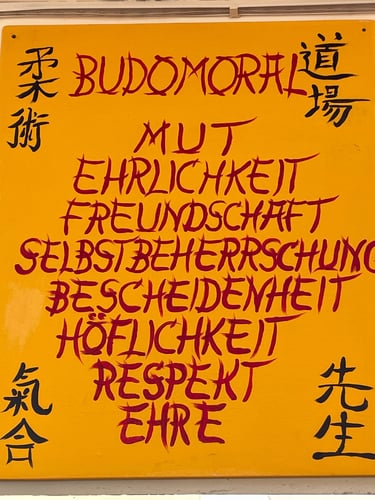 柔術
BUDOMORAL
道場
MUT
EHRLICHKEIT
FREUNDSCHAFT
SELBSTBEHERRSCHUNG
BESCHEIDENHEIT
HÖFLICHKEIT
RESPEKT
EHRE
氣合
先生